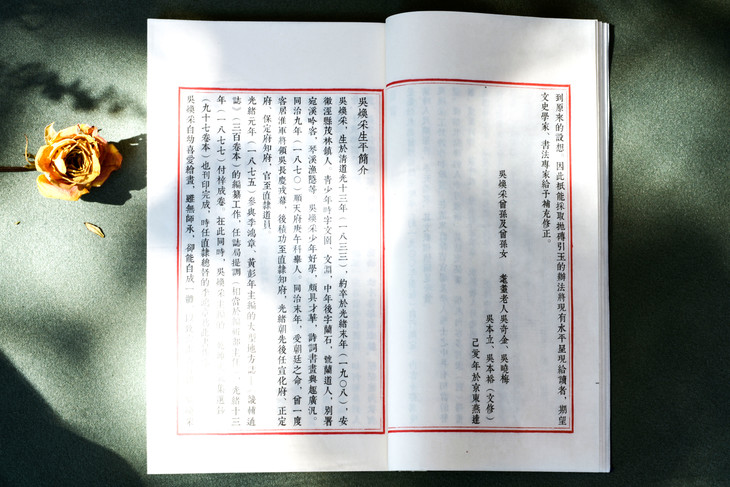 到原來的設想，因此祇能採取拋磚引玉的辦法將現有水平呈現給讀者，期望
文史學家、書法專家給予補充修正。
吳煥采曾孫及曾孫女　耄耋老人吳奇金、吳曉梅
吳本立、吳本裕（文修）
己亥年於京東燕達
吳煥采生平簡介
吳煥采，生於清道光十三年（一八三三），約卒於光緒末年（一九〇八），安
徽涇縣茂林鎮人，青少年時字文園、文淵，中年後字蘭石，號蘭道人，別署
宛溪吟客、琴溪漁隱等。吳煥采少年好學，頗具才華，詩詞書畫興趣廣汎。
同治九年（一八七〇）順天府庚午科舉人。同治末年，受朝廷之命，曾一度
客居淮軍將領吳長慶戎幕，後積功至直隸知府，光緒朝先後任宣化府、正定
府、保定府知府，官至直隸道員。
光緒元年（一八七五）參與李鴻章、黃彭年主編的大型地方志——《畿輔通
誌》（三百卷本）的編纂工作，任誌局提調（相當於
光緒十三
年（一八七七）付梓成卷。在此同時，吳煥采
（九十七卷本）也刊印完成，時任直隸總督的李
吳煥采自幼喜愛繪畫，雖無師承，卻能自成一體